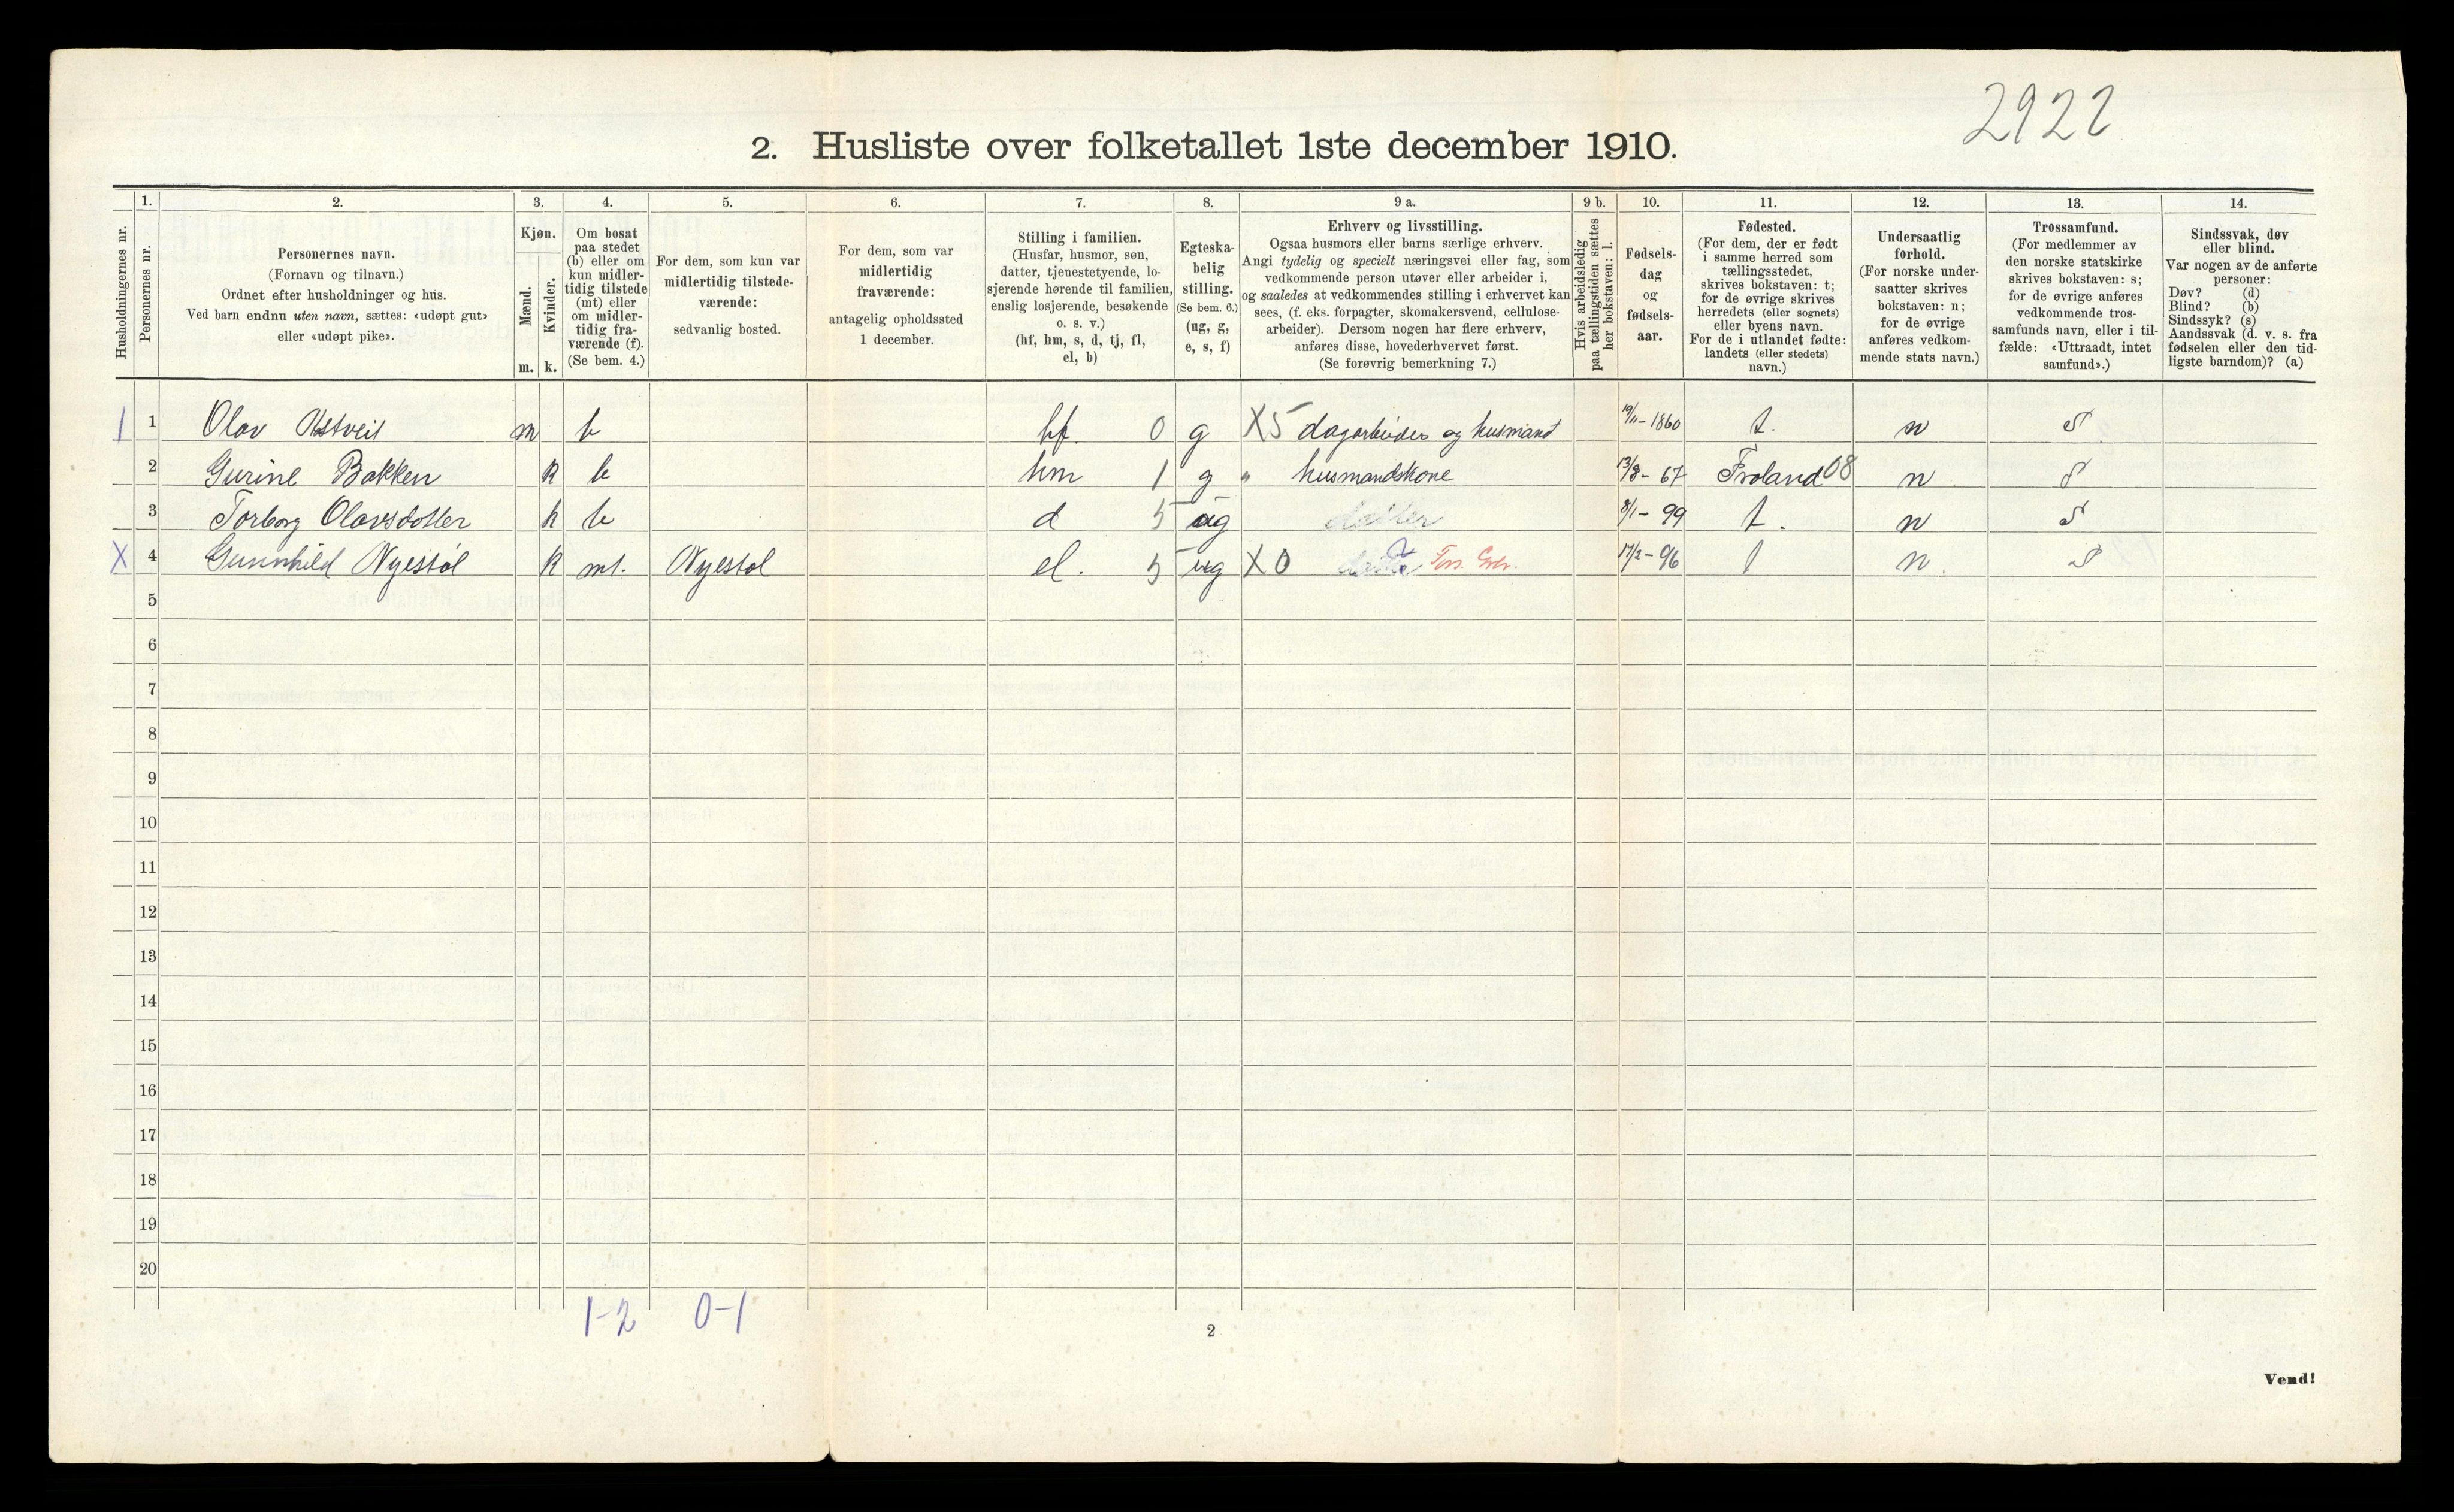 2922
2. Husliste over folketallet 1ste december 1910.
1. 2. 3. 4. 5. 6. 7. 8. 9 a. 9 b. 10. 11. 12. 13. 14.
Husholdningernes nr.
Personernes nr.
Personernes navn.
(Fornavn og tilnavn.)
Ordnet efter husholdninger og hus.
Ved barn endnu uten navn, sættes: «udøpt gut»
eller «udøpt pike».
Kjøn.
Mænd.
Kvinder.
m. k.
Om bosat
paa stedet
(b) eller om
kun midler-
tidig tilstede
(mt) eller
om midler-
tidig fra-
værende (f).
(Se bem. 4.)
For dem, som kun var
midlertidig tilstede-
værende:
sedvanlig bosted.
For dem, som var
midlertidig
fraværende:
antagelig opholdssted
1 december.
Stilling i familien.
(Husfar, husmor, søn,
datter, tjenestetyende, lo-
sjerende hørende til familien,
enslig losjerende, besøkende
o. s. v.)
(hf, hm, s, d, tj, fl,
el, b)
Egteska-
belig
stilling.
(Se bem. 6.)
(ug, g,
e, s, f)
Erhverv og livsstilling.
Ogsaa husmors eller barns særlige erhverv.
Angi tydelig og specielt næringsvei eller fag, som
vedkommende person utøver eller arbeider i,
og saaledes at vedkommendes stilling i erhvervet kan
sees, (f. eks. forpagter, skomakersvend, cellulose-
arbeider). Dersom nogen har flere erhverv,
anføres disse, hovederhvervet først.
(Se forøvrig bemerkning 7.)
Hvis arbeidsledig
paa tællingstiden sættes
her bokstaven: l.
Fødsels-
dag
og
fødsels-
aar.
Fødested.
(For dem, der er født
i samme herred som
tællingsstedet,
skrives bokstaven: t;
for de øvrige skrives
herredets (eller sognets)
eller byens navn.
For de i utlandet fødte:
landets (eller stedets)
navn.)
Undersaatlig
forhold.
(For norske under-
saatter skrives
bokstaven: n;
for de øvrige
anføres vedkom-
mende stats navn.)
Trossamfund.
(For medlemmer av
den norske statskirke
skrives bokstaven: s;
for de øvrige anføres
vedkommende tros-
samfunds navn, eller i til-
fælde: «Uttraadt, intet
samfund».)
Sindssvak, døv
eller blind.
Var nogen av de anførte
personer:
Døv? (d)
Blind? (b)
Sindssyk? (s)
Aandssvak (d. v. s. fra
fødselen eller den tid-
ligste barndom)? (a)
1 1 Olav m b hf. 0 g X5 dagarbeider og husmand 19/11-1860 t. n s
2 Gurine Bakken k b hm 1 g " husmandskone 13/8-67 Froland 08 n s
3 Torborg Olavsdotter k b d 5 ug datter 8/1-99 t. n s
X 4 Gunnhild Nyestøl k mt. Nyestøl el. 5 ug X0 17/2-96 t n. s
5
6
7
8
9
10
11
12
13
14
15
16
17
18
19
20
1-2 0-1
2
Vend!